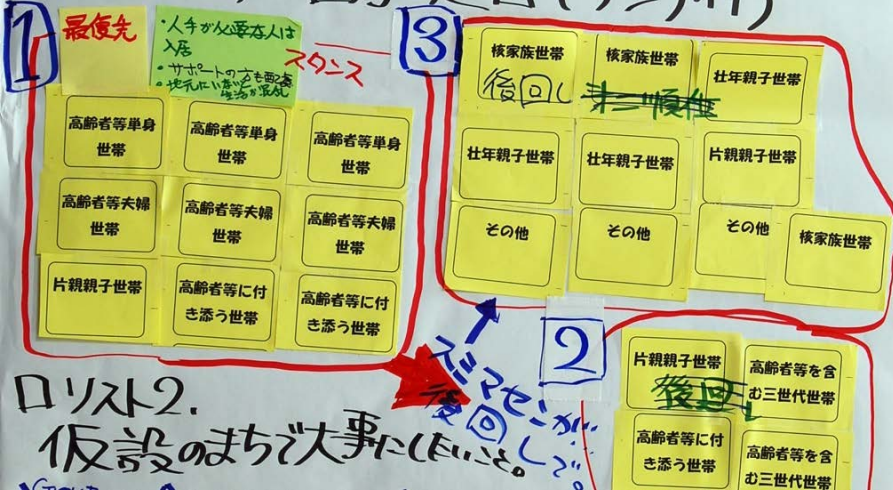 1
最優先
・人手が必要な人は
入居
・サポートの方も
・地元にいないと
スタンス
高齢者等単身
世帯
高齢者等単身
世帯
高齢者等単身
世帯
高齢者等夫婦
世帯
高齢者等夫婦
世帯
高齢者等夫婦
世帯
片親親子世帯
高齢者等に付
き添う世帯
高齢者等に付
き添う世帯
3
核家族世帯
後回し
核家族世帯
壮年親子世帯
壮年親子世帯
壮年親子世帯
片親親子世帯
その他
その他
その他
核家族世帯
スミマセンが…
後回しで。
2
片親親子世帯
後回し
高齢者等を含
む三世代世帯
高齢者等に付
き添う世帯
高齢者等を含
む三世代世帯
ロリスト2.
仮設のまちで大事にしたいこと。